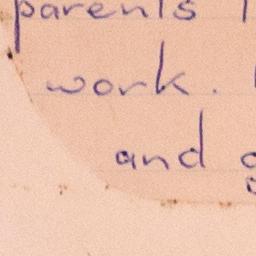 parents
work.
and